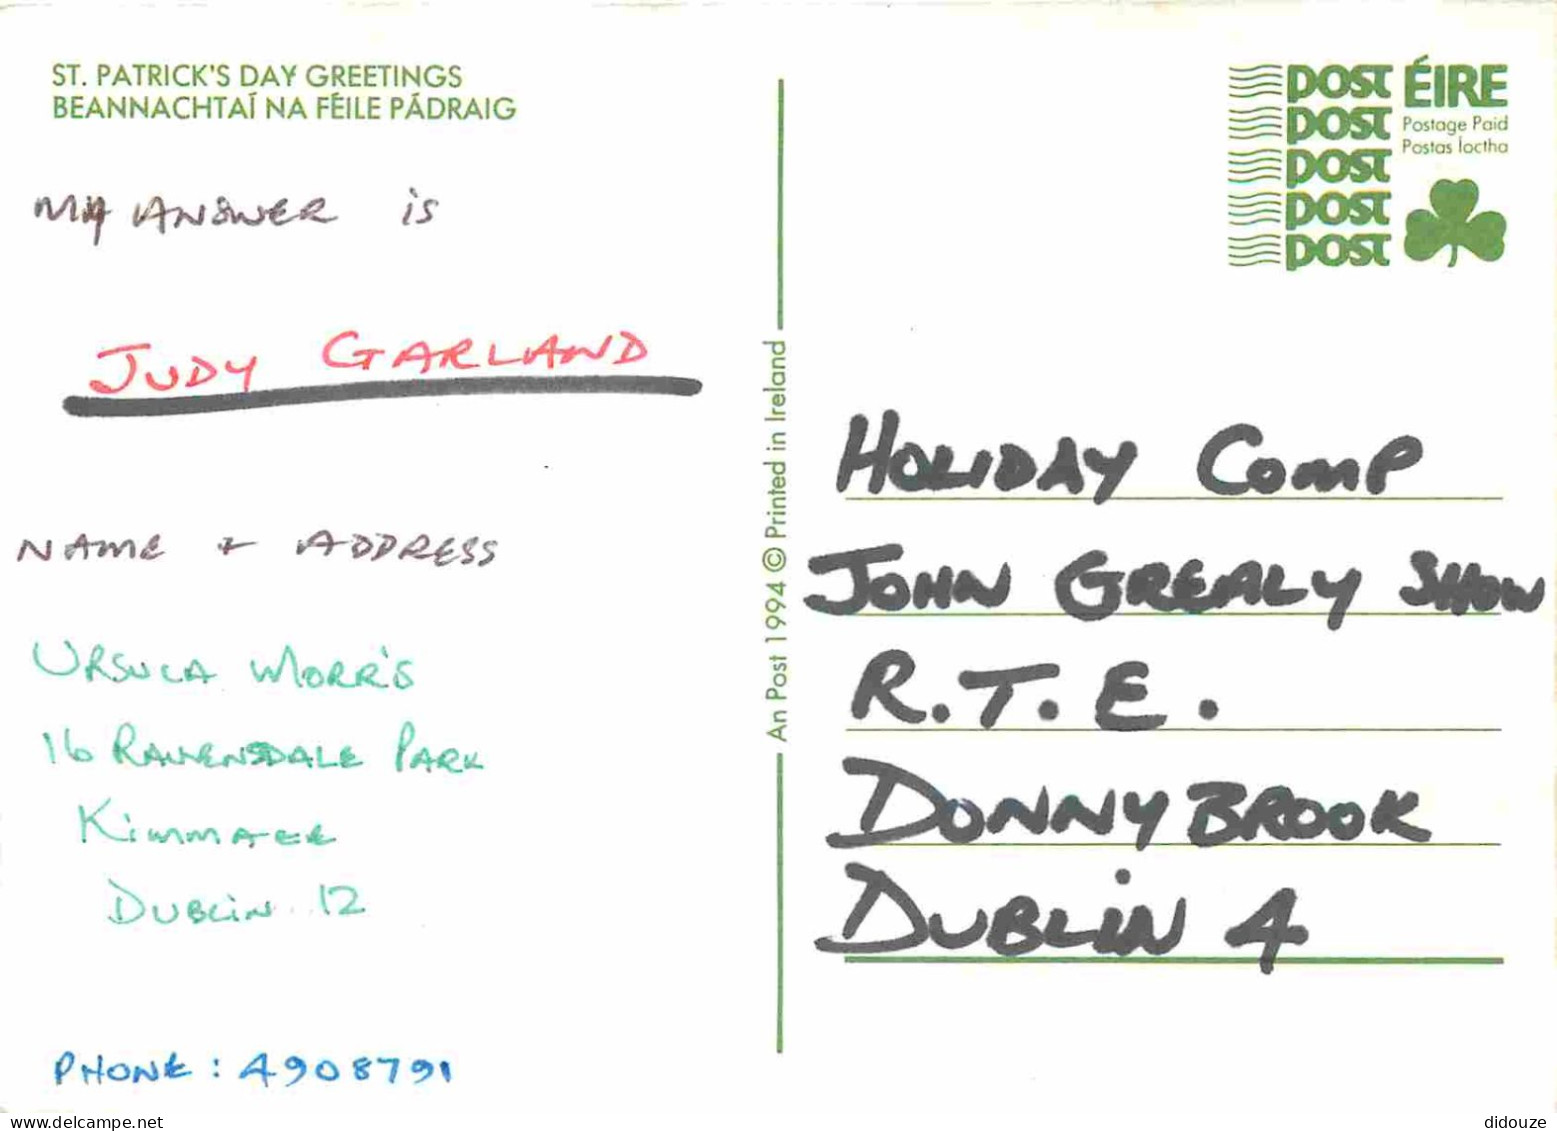 ST. PATRICK'S DAY GREETINGS
BEANNACHTAÍ NA FÉILE PÁDRAIG
MY ANSWER is
JUDY GARLAND
NAME + ADDRESS
URSULA MORRIS
16 RAVENSDALE PARK
KIMMAGE
DUBLIN 12
PHONE: 4908791
An Post 1994 © Printed in Ireland
POST ÉIRE
POST Postage Paid
POST Postas Íoctha
POST
POST
HOLIDAY COMP
JOHN GREALY SHOW
R.T.E.
DONNYBROOK
DUBLIN 4
didouze